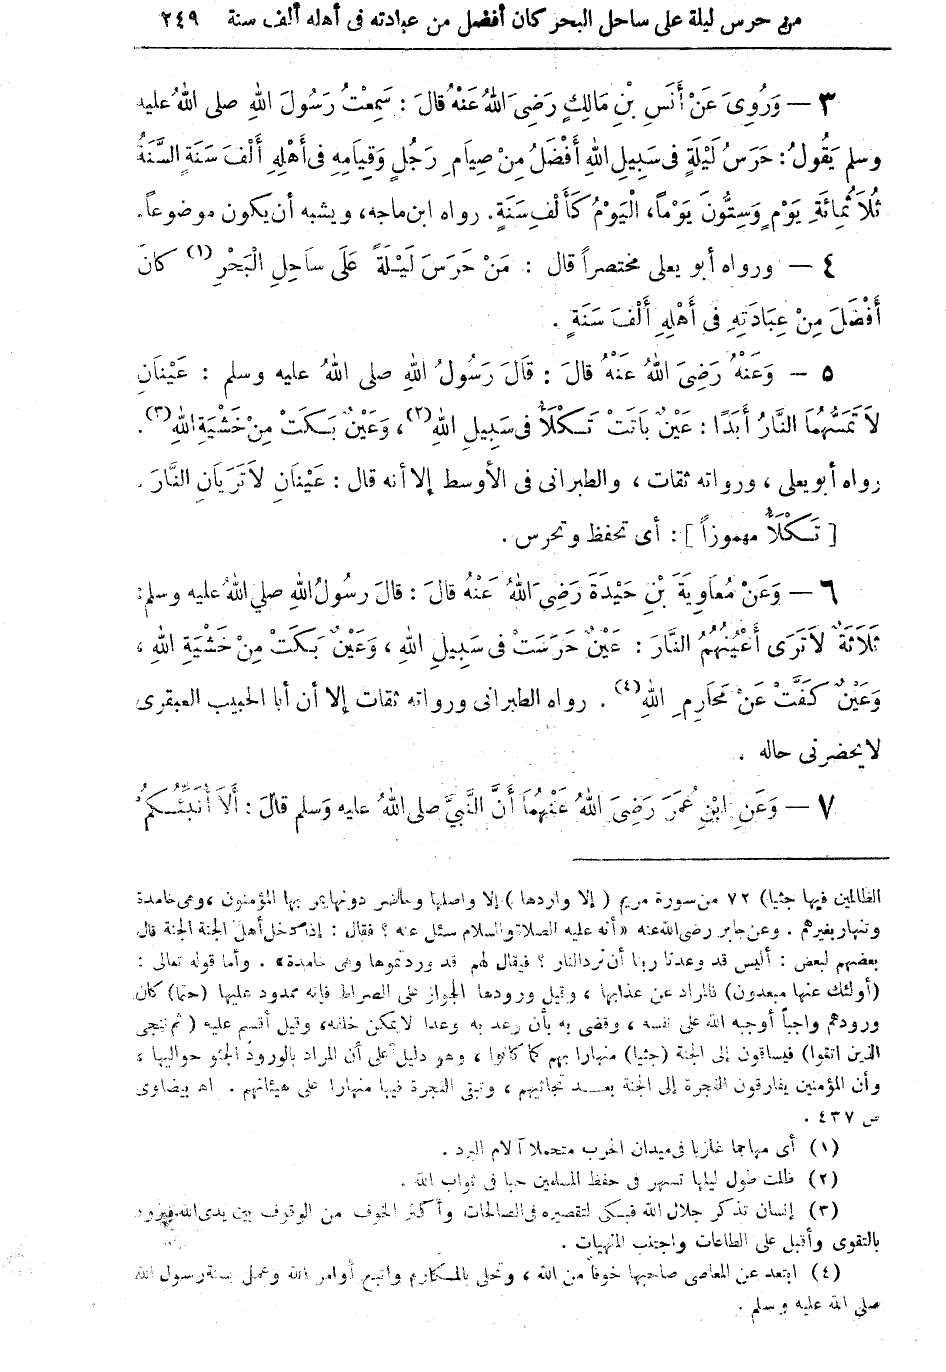 من حرس ليلة على ساحل البحر كان أفضل من عبادته فى أهله ألف سنة ٢٤٩
٣ — وَرُوِىَ عَنْ أَنَسِ بْنِ مَالِكٍ رَضِىَ اللهُ عَنْهُ قالَ : سَمِعْتُ رَسُولَ اللهِ صلى اللهُ عليه
وسلم يَقُولُ : حَرَسُ لَيْلَةٍ فى سَبِيلِ اللهِ أَفْضَلُ مِنْ صِيَامِ رَجُلٍ وَقِيَامِهِ فى أَهْلِهِ أَلْفَ سَنَةٍ السَّنَةُ
ثُلَاثُمِائَةِ يَوْمٍ وَسِتُّونَ يَوْماً، الْيَوْمُ كَأَلْفِ سَنَةٍ. رواه ابن ماجه، ويشبه أن يكون موضوعاً.
٤ — ورواه أبو يعلى مختصراً قال : مَنْ حَرَسَ لَيْلَةً عَلَى سَاحِلِ الْبَحْرِ (١) كانَ
أَفْضَلَ مِنْ عِبَادَتِهِ فى أَهْلِهِ أَلْفَ سَنَةٍ .
٥ — وَعَنْهُ رَضِىَ اللهُ عَنْهُ قالَ : قَالَ رَسُولُ اللهِ صلى اللهُ عليه وسلم : عَيْنَانِ
لاَ تَمَسُّهُمَا النَّارُ أَبَدًا : عَيْنٌ بَاتَتْ تَكْلَأُ فى سَبِيلِ اللهِ (٢)، وَعَيْنٌ بَكَتْ مِنْ خَشْيَةِ اللهِ (٣).
رواه أبو يعلى ، ورواته ثقات ، والطبرانى فى الأوسط إلا أنه قال : عَيْنَانِ لاَ تَرَيَانِ النَّارَ .
[ تَكْلَأُ مهموزاً ] : أى تحفظ وتحرس .
٦ — وَعَنْ مُعَاوِيَةَ بْنِ حَيْدَةَ رَضِىَ اللهُ عَنْهُ قالَ : قالَ رسُولُ اللهِ صلى اللهُ عليه وسلم :
ثَلَاثَةٌ لاَ تَرَى أَعْيُنُهُمُ النَّارَ : عَيْنٌ حَرَسَتْ فى سَبِيلِ اللهِ ، وَعَيْنٌ بَكَتْ مِنْ خَشْيَةِ اللهِ ،
وَعَيْنٌ كَفَّتْ عَنْ مَحَارِمِ اللهِ (٤) . رواه الطبرانى ورواته ثقات إلا أن أبا الحبيب العبقرى
لا يحضرنى حاله .
٧ — وَعَنِ ابْنِ عُمَرَ رَضِىَ اللهُ عَنْهُمَا أَنَّ النَّبِيَّ صلى اللهُ عليه وَسلم قالَ : أَلاَ أُنَبِّئُكُمْ
الظالمين فيها جثيا) ٧٢ من سورة مريم ( إلا واردها ) إلا واصلها وحاضر دونها يمر بها المؤمنون ، وهى خامدة
وتنهار بغيرهم . وعن جابر رضى الله عنه « أنه عليه الصلاة والسلام سئل عنه ؟ فقال : إذا دخل أهل الجنة الجنة قال
بعضهم لبعض : أليس قد وعدنا ربنا أن نرد النار ؟ فيقال لهم قد وردتموها وهى خامدة » . وأما قوله تعالى :
(أولئك عنها مبعدون) فالمراد عن عذابها ، وقيل ورودها الجواز على الصراط فإنه ممدود عليها (حتما) كان
ورودهم واجباً أوجبه الله على نفسه ، وقضى به بأن وعد به وعدا لا يمكن خلفه، وقيل أقسم عليه ( ثم ننجى
الذين اتقوا) فيساقون إلى الجنة (جثيا) منهارا بهم كما كانوا ، وهو دليل على أن المراد بالورود الجثو حواليها ،
وأن المؤمنين يفارقون الفجرة إلى الجنة بعد تجاثيهم ، وتبقى الفجرة فيها منهارا على هيئاتهم . اهـ بيضاوى
ص ٤٣٧ .
(١) أى مهاجما غازيا فى ميدان الحرب متحملا آلام البرد .
(٢) ظلت طول ليلها تسهر فى حفظ المسلمين حبا فى ثواب الله .
(٣) إنسان تذكر جلال الله فبكى لتقصيره فى الصالحات وأكثر الخوف من الوقوف بين يدى الله فيزود
بالتقوى وأقبل على الطاعات واجتنب المنهيات .
(٤) ابتعد عن المعاصى صاحبها خوفا من الله ، وتحلى بالمكارم واتبع أوامر الله وعمل بسنة رسول الله
صلى الله عليه وسلم .